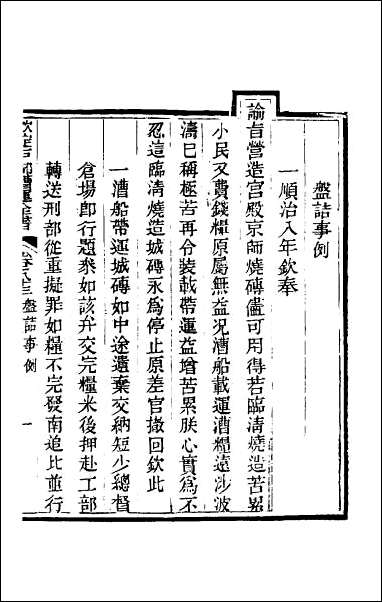 盤詰事例
一順治八年欽奉
諭旨營造宮殿京師燒磚儘可用得若臨清燒造苦累
小民又費錢糧原屬無益况漕船載運漕糧遠涉波
濤已稱極苦再令裝載帶運益增苦累朕心實為不
忍這臨清燒造城磚永為停止原差官撤回欽此
一漕船帶運城磚如中途遺棄交納短少總督
倉場即行題叅如該弁交完糧米後押赴工部
轉送刑部從重擬罪如糧不完發南追比並行
欽定戶部漕運全書 卷八十三 盤詰事例 一